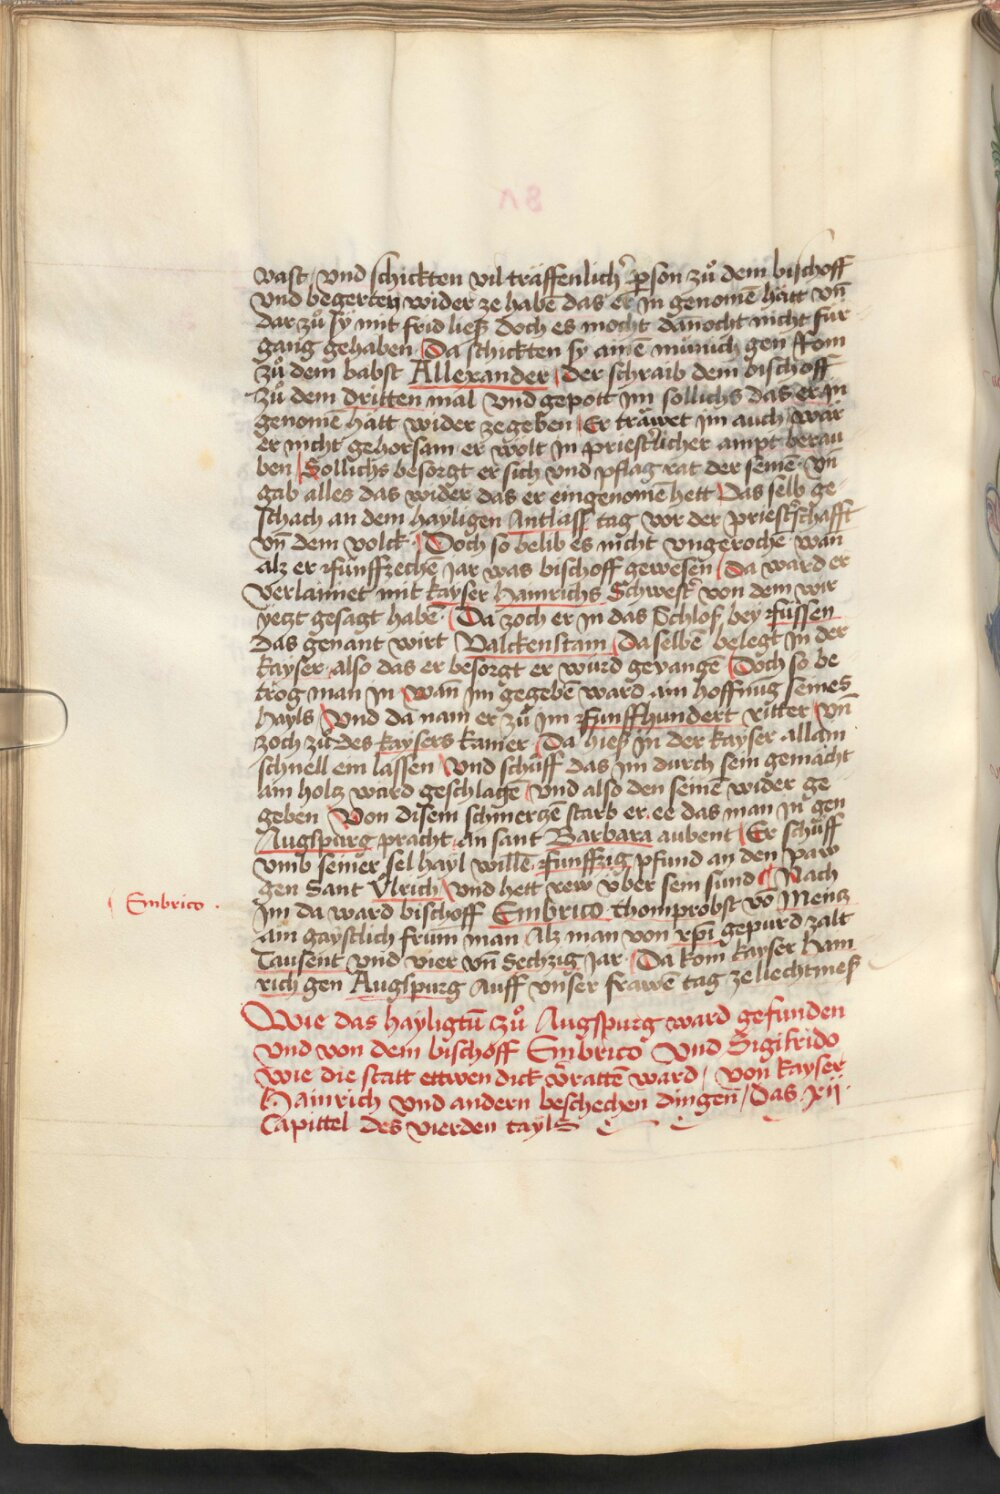 vast / vnd schickten vil träffenlich' ꝑson zů dem bischoff
vnd begerten wider ze habē das er in genomē hätt vn̄
dar zů sÿ mit frid ließ doch es mocht dānocht nicht für
gang gehaben / Da schickten sy ainē münich gen Rom
zů dem babst Allexander / der schraib dem bischoff
zů dem dritten mal vnd gepott im sollichs das er in
genomē hätt wider ze geben / Er träwet im auch / wär
er nicht gehorsam er wolt in priest'licher ampt berau
ben / Sollichs besorgt er sich vnd pflag rat der seinē vn̄
gab alles das wider das er eingenomē hett / Das selb ge-
schach an dem hayligen Antlass tag vor der priest'schafft
vn̄ dem volck / Doch so belib es nicht vngerochē wan
alz er fünffzechē iar was bischoff gewesen / Da ward er
verlaimet mit kayser Hainrichs Schwest' von dem wir
yetzt gesagt habē / Da zoch er in das Schloß bey Füssen
das genant wirt Valckenstain / Da selbē belegt in der
kayser also das er besorgt er wurd gevangē / Doch so be
trog man in wan̄ im gegebē ward ain hoffnūg seines
hayls / Vnd da nam er zů im Funffhundert ritter / vn̄
zoch zů des kaysers kamer / Da hieß in der kayser allain
schnell ein lassen / Vnd schůff das im durch sein gemächt
ain holtz ward geschlagē / Vnd also den seinē wider ge
geben / Von disem schmerczē starb er ee das man in gen
Augspurg pracht an sant Barbara aubent / Er schůff
vmb seiner sel hayl willē funffzig pfund an den paw
gen Sant Vlrich / vnd hett rew über sein sünd ¶ Nach
Embrico .
im da ward bischoff Embrico thomprobst vō Mentz
ain gaystlich frum man Alz man von xp̄i gepurd zalt
Tausent vnd vier vn̄ Sechzig iar / Da kom kayser Hain
rich gen Augspurg Auff vnser frawē tag ze liechtmeß
Wie das hayligtū zů Augspurg ward gefunden
vnd von dem bischoff Embrico Vnd Sigifrido
wie die statt ettwen dick v'rattē ward / von kayser
Hainrich vnd andern beschechen dingen / Das xij
Capittel des vierden tayls